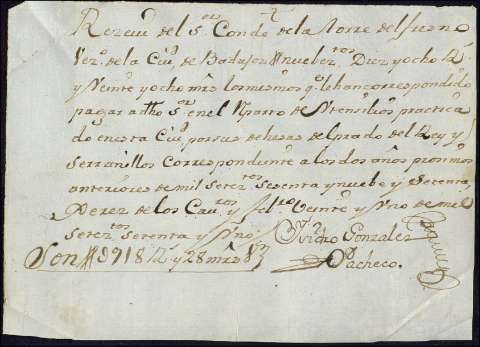 Rezevi del S.or Conde de la Torre del fresno
Vez.o de la Ciu.d de Badajoz Nuebez.tos Diez y ocho R.s
y Veinte y ocho mrs los mismos q.e le han correspondido
pagar a dho S.or en el Reparto de Utensilios practica
do en esta Ciu.d por sus dehesas del prado del Rey y
Serranillos correspondiente a los dos años proximos
anteriores de mil setez.tos sesenta y nuebe y setenta,
Xerez de los Cav.ros y feb.ro Veinte y Vno de mil
setez.tos setenta y Vno.
Ysidro Gonzalez
Pacheco.
Son 918 R.s y 28 mrs V.n